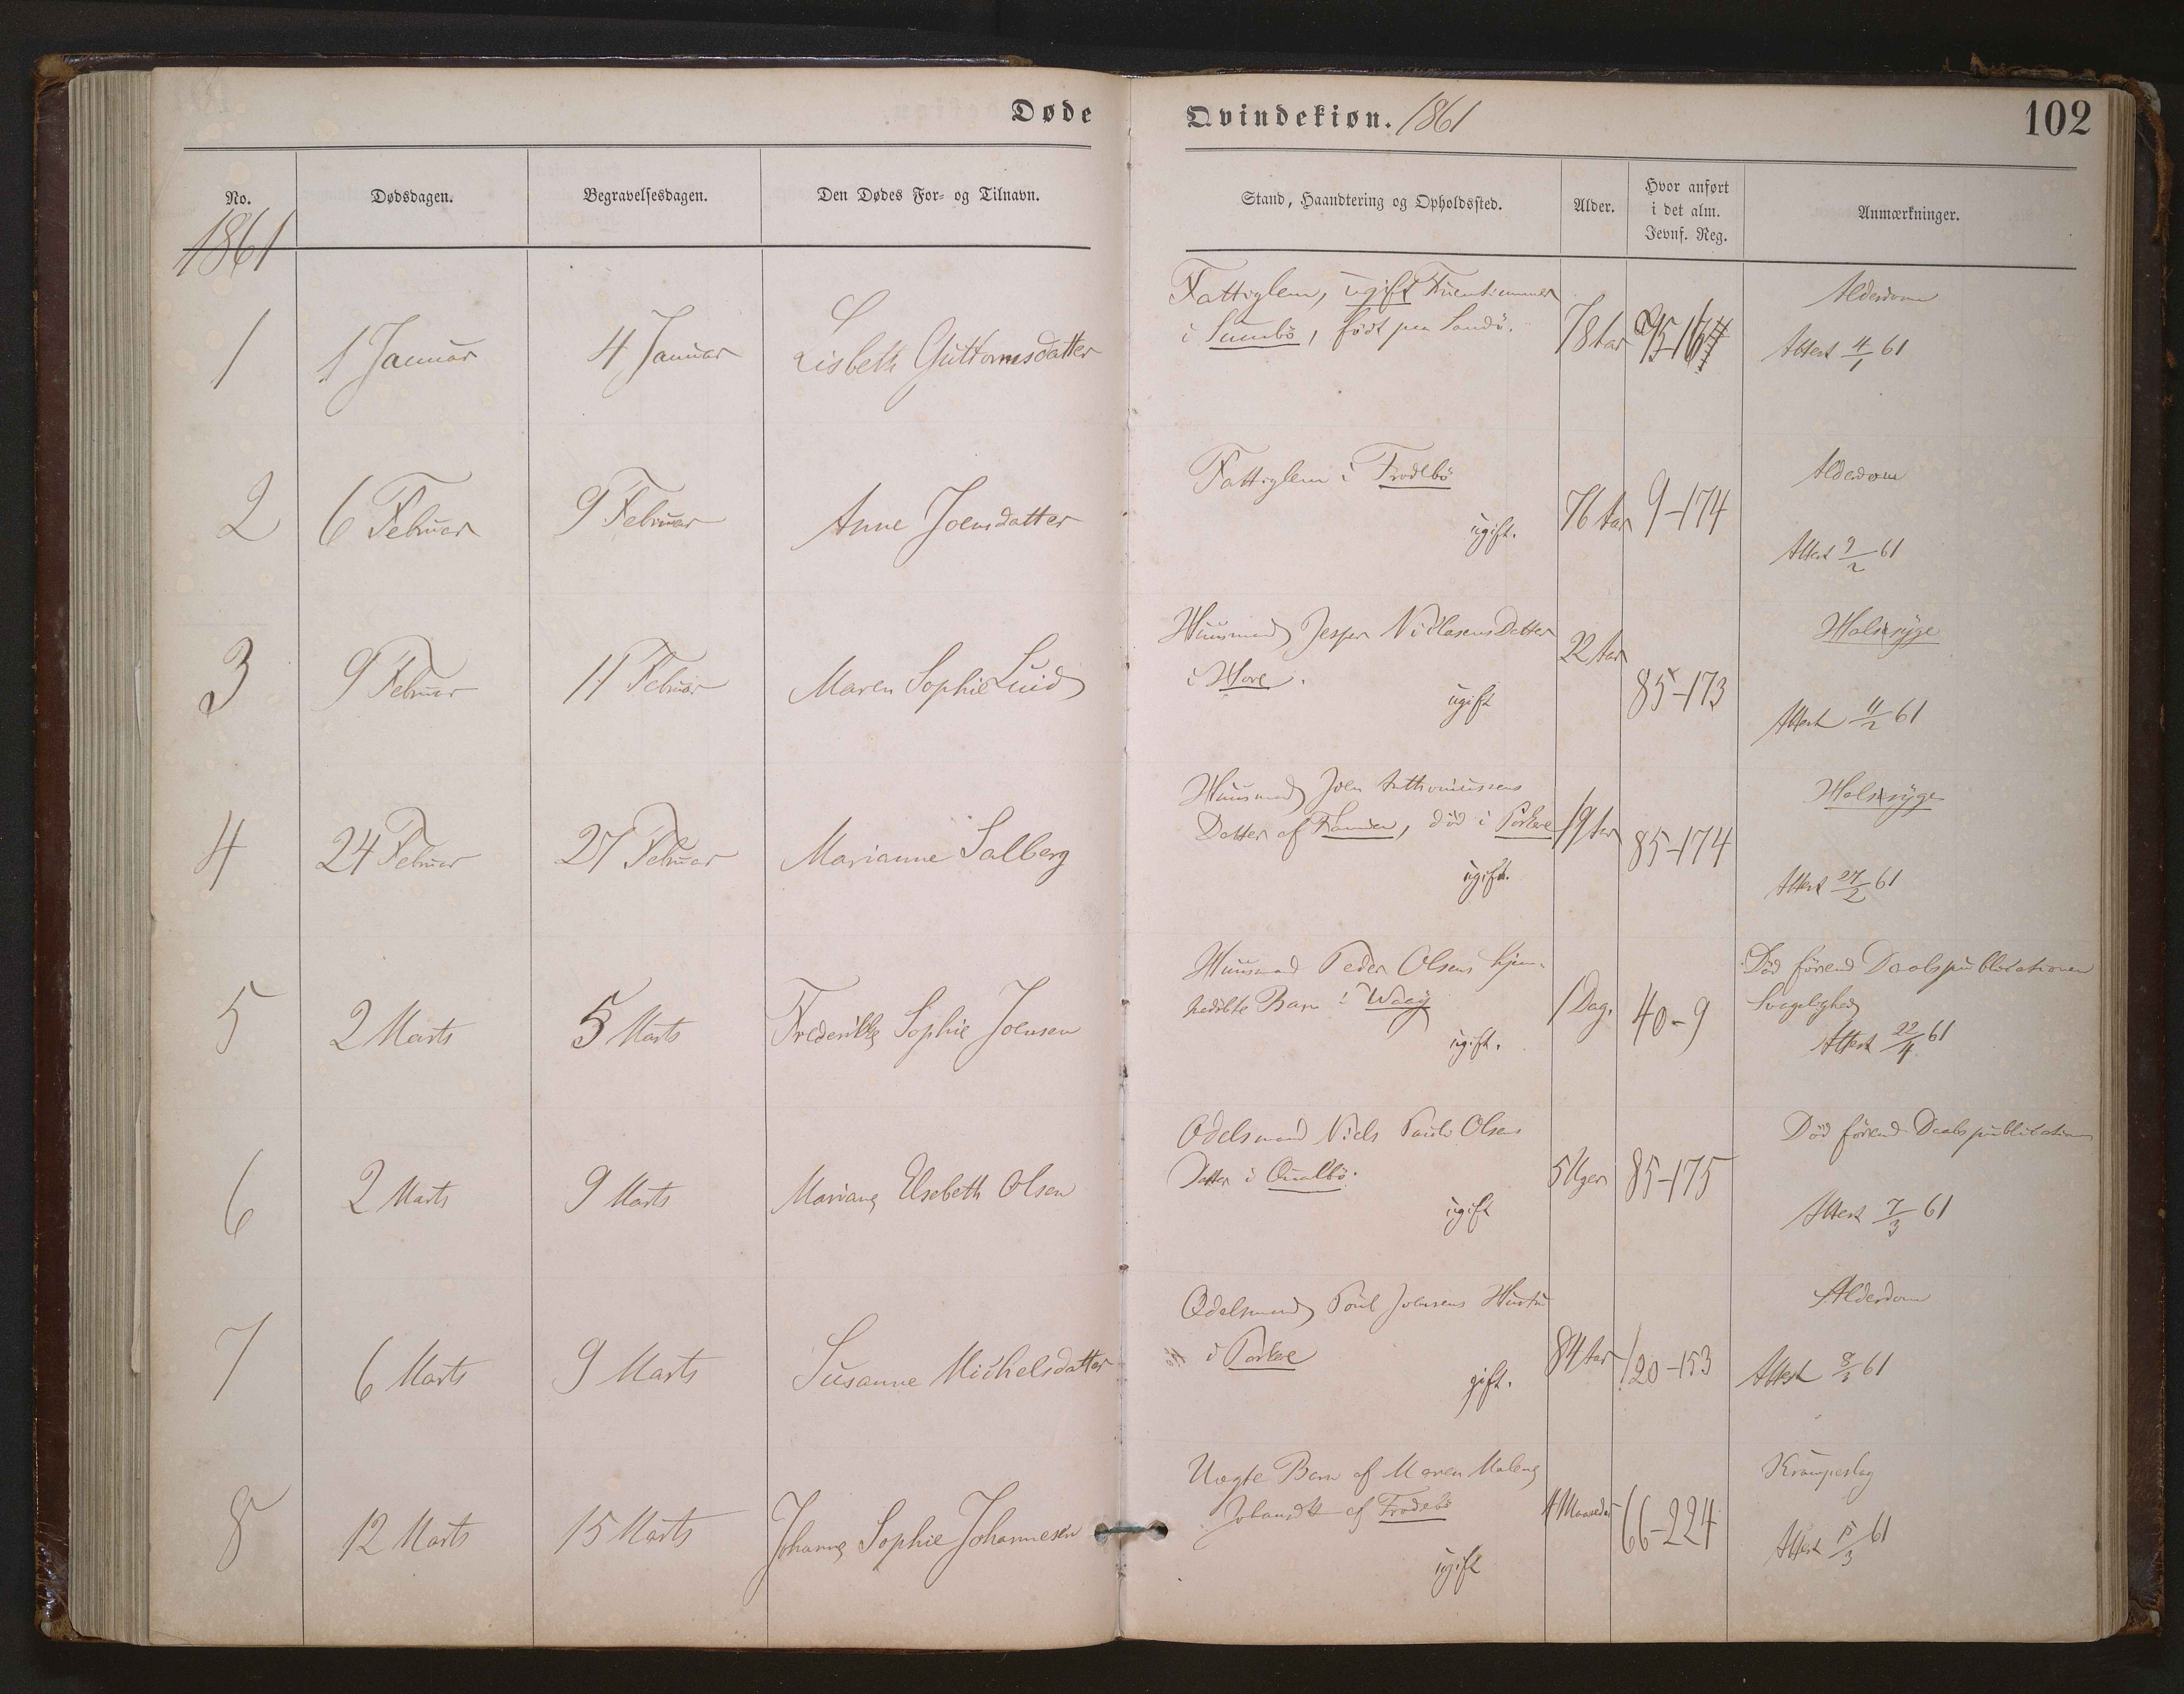 Døde
Qvindekiøn. 1861
102
No.
Dødsdagen.
Begravelsesdagen.
Den Dødes For- og Tilnavn.
Stand, Haandtering og Opholdssted.
Alder.
Hvor anført
i det alm.
Jevnf. Reg.
Anmærkninger.
1861
1
1 Januar
4 Januar
Lisbeth Guttormsdatter
Fattiglem, ugift Fruentimmer
i Sumbö, födt paa Sandö.
78 Aar
Alderdom
Attest 4/1 61
2
6 Februar
9 Februar
Anne Joensdatter
Fattiglem i Frodebö
ugift.
76 Aar
9-174
Alderdom
Attest 9/2 61
3
9 Februar
11 Februar
Maren Sophie Luid
Huusmand Jesper Niclasens Datter
i Hove.
ugift
22 Aar
85-173
Halssyge
Attest 11/2 61
4
24 Februar
27 Februar
Marianne Salberg
Huusmand Joen Anthoniussens
Datter af Famien, död i Porkere
ugift.
19 Aar
85-174
Halssyge
Attest 27/2 61
5
2 Marts
5 Marts
Frederikke Sophie Joensen
Huusmand Peder Olsens hjem-
medöbte Barn i Waag
ugift.
1 Dag.
40-9
Död förend Daabspublicationen
Svagelighed
Attest 22/4 61
6
2 Marts
9 Marts
Mariane Elsebeth Olsen
Odelsmand Niels Pauli Olsens
Datter i Qualbö.
ugift
5 Uger
85-175
Död förend Daabspublication
Attest 7/3 61
7
6 Marts
9 Marts
Susanne Michelsdatter
Odelsmand Poul Joensens Hustru
i Porkere
gift.
84 Aar
120-153
Alderdom
Attest 8/3 61
8
12 Marts
15 Marts
Johanne Sophie Johannesen
Uægte Barn af Maren Malene
af Frodebö
ugift
4 Maaneder
66-224
Krampeslag
Attest 15/3 61